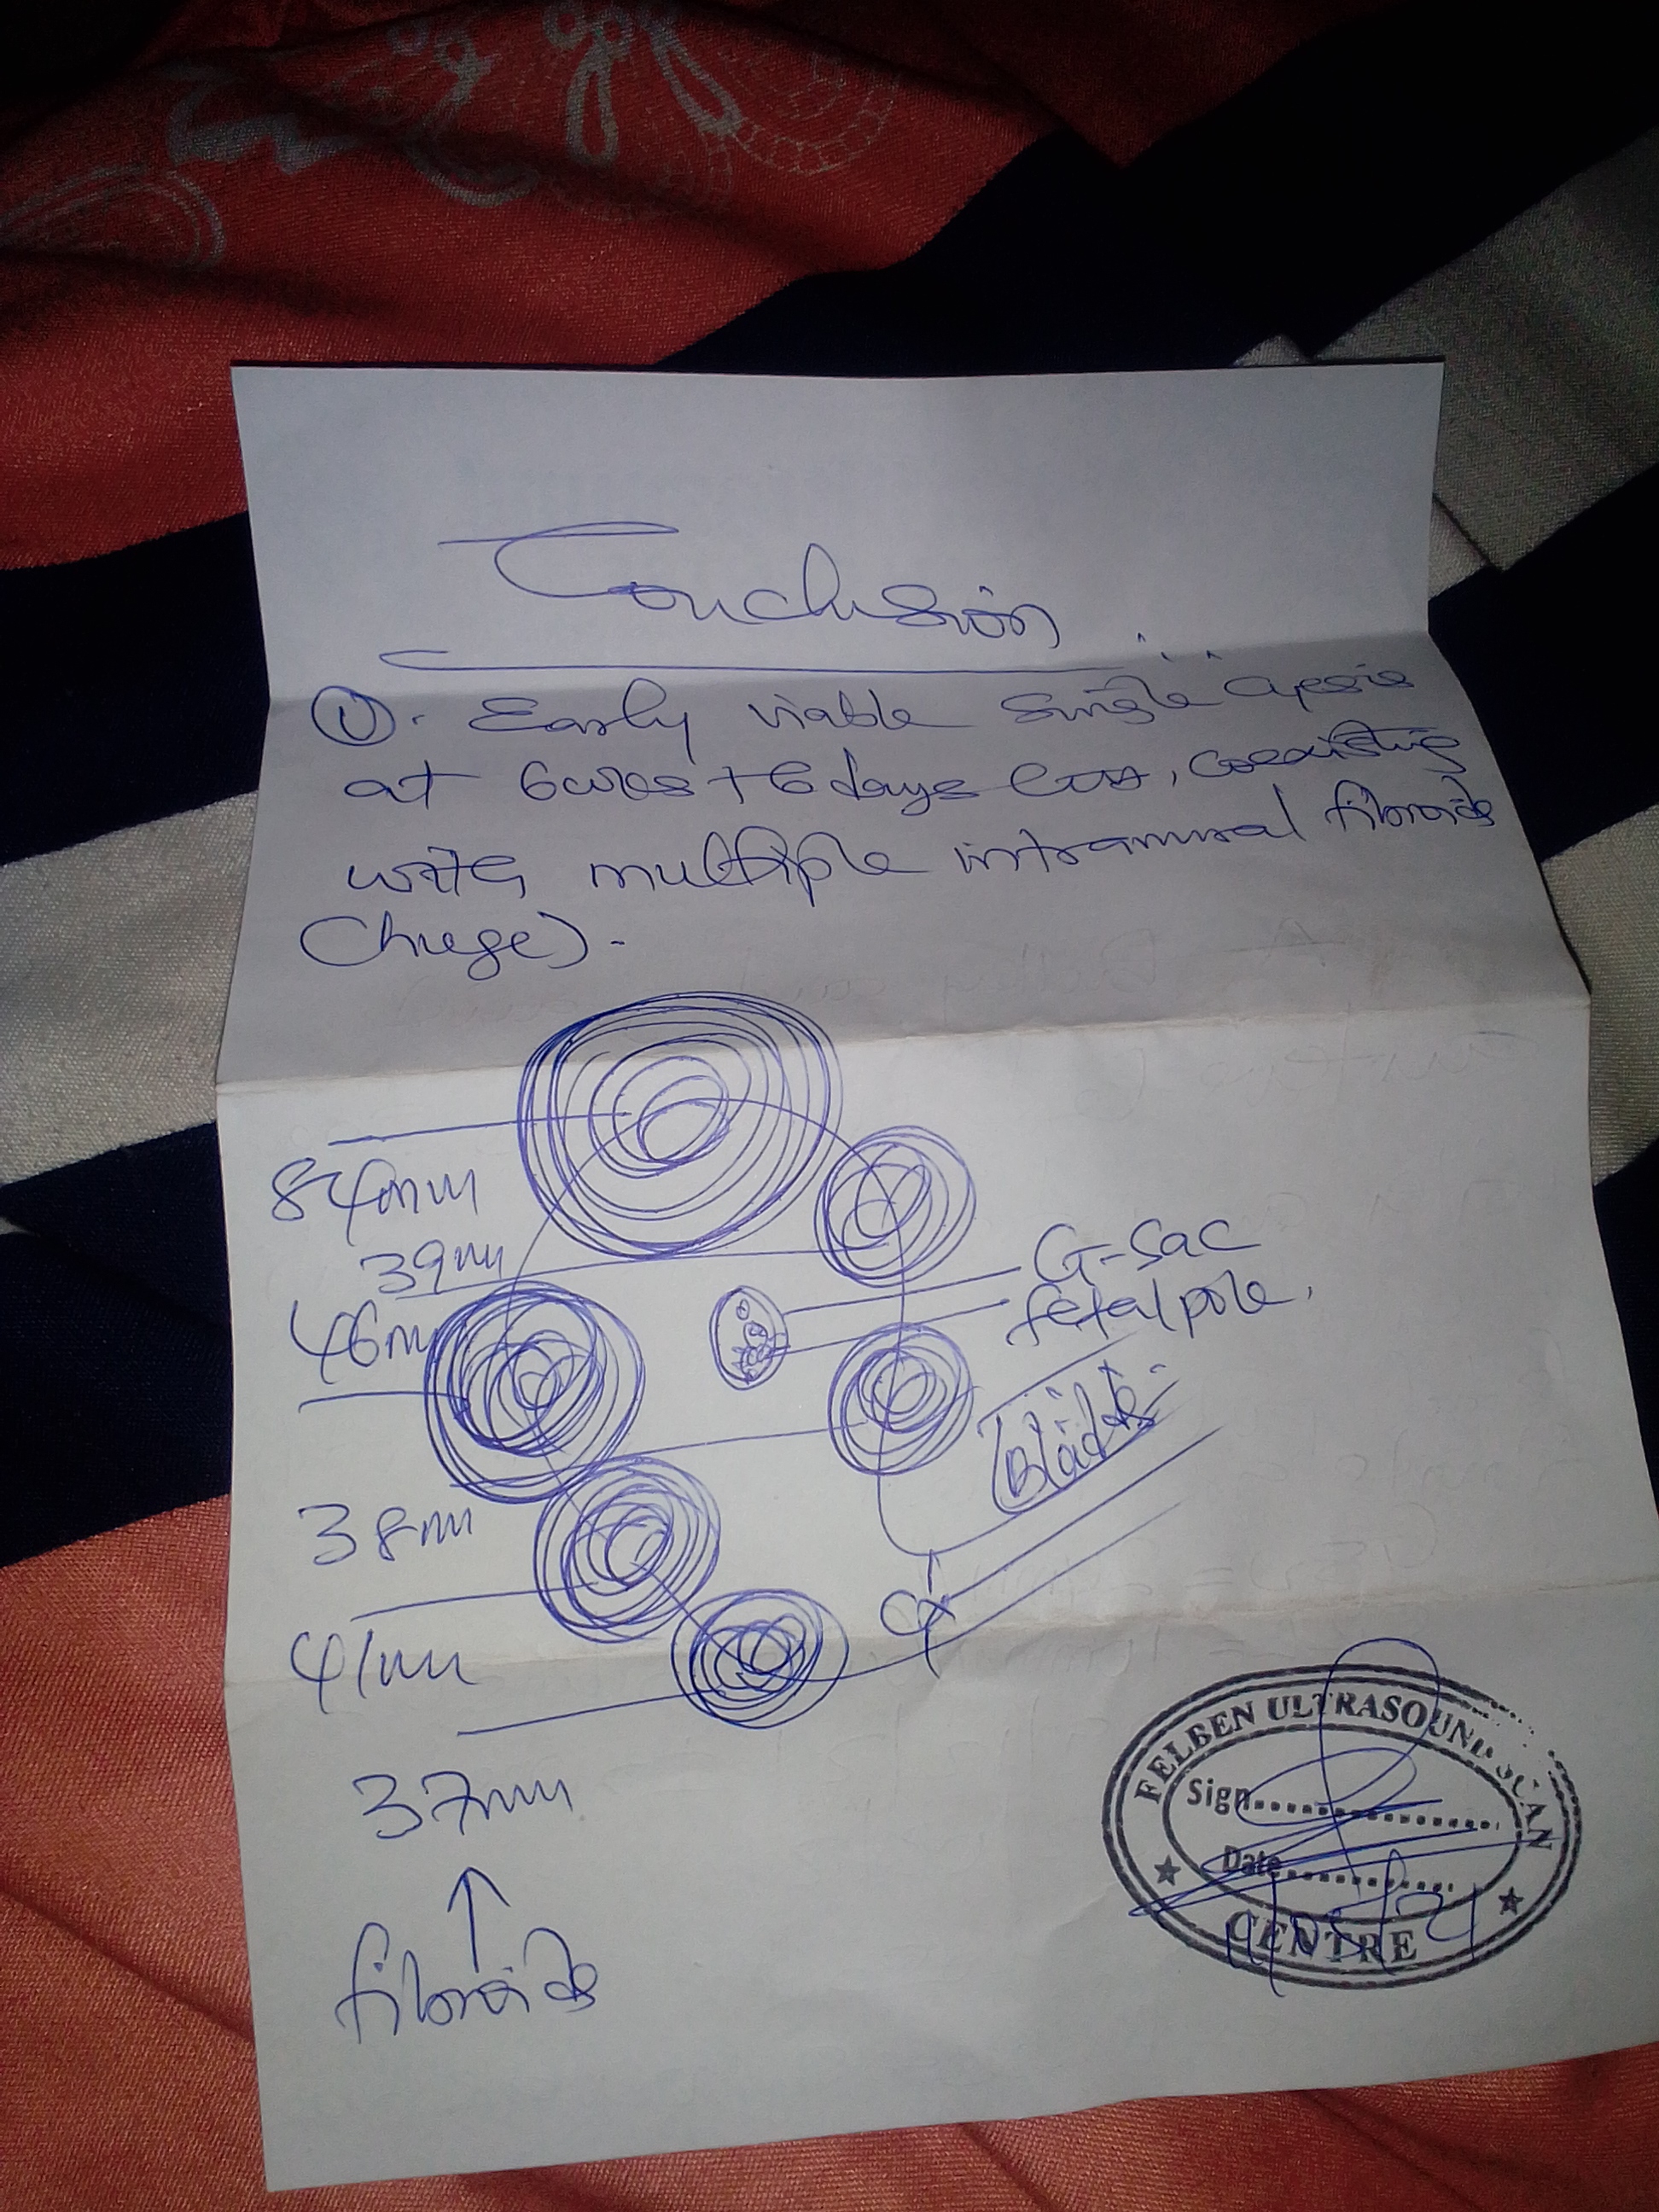 Conclusion
①. Early viable single cyesis
at 6wks + 6days, coexisting
with multiple intramural fibroids
(huge).
84mm
39mm
G-Sac
46mm
fetal pole.
38mm
Cx
41mm
37mm
fibroids
FELBEN ULTRASOUND SCAN
Sign
Date
CENTRE